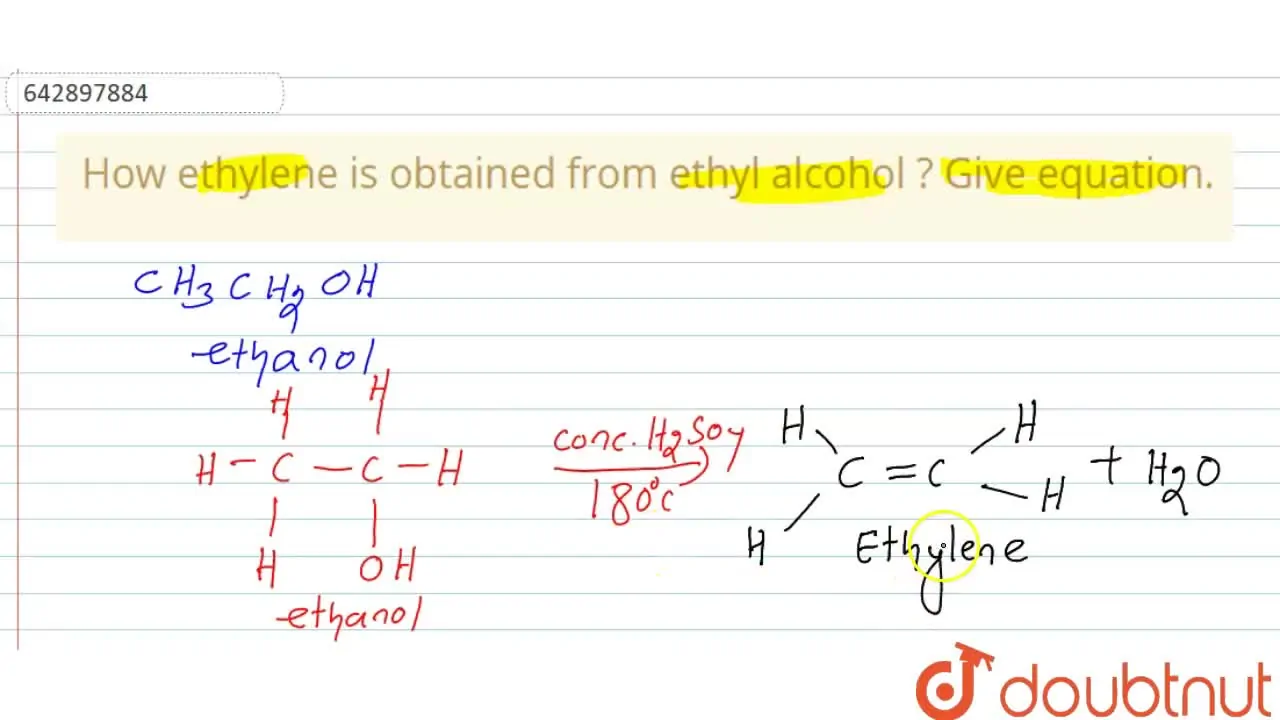 642897884
How ethylene is obtained from ethyl alcohol ? Give equation.
CH3CH2OH
ethanol
H H
H - C - C - H conc. H2SO4 H H
180°C C = C + H2O
H OH H H
ethanol Ethylene
doubtnut